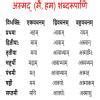 अस्मद् (मैं, हम) शब्दरूपाणि
विभक्तिः एकवचनम् द्विवचनम् बहुवचनम्
प्रथमा अहम् आवाम् वयम्
द्वितीया माम् आवाम् अस्मान्
तृतीया मया आवाभ्याम् अस्माभिः
चतुर्थी मह्यम् आवाभ्याम् अस्मभ्यम्
पञ्चमी मत् आवाभ्याम् अस्मत्
षष्ठी मम आवयोः अस्माकम्
सप्तमी मयि आवयोः अस्मासु